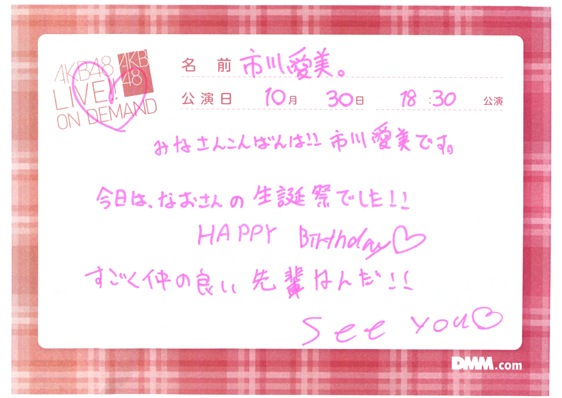 AKB48
LIVE!!
ON DEMAND
AKB
48
名 前 市川愛美。
公演日 10月 30日 18:30 公演
みなさんこんばんは!! 市川愛美です。
今日は、なおさんの 生誕祭でした!!
HAPPY Birthday♡
すごく仲の良い 先輩なんだ!!
See you♡
DMM.com